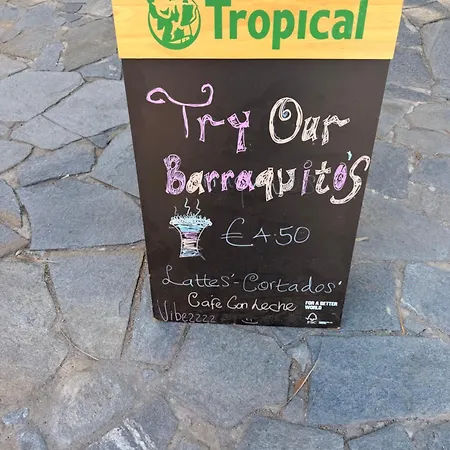 Tropical
Try Our
Barraquito's
€4.50
Lattes'-Cortados'
Cafe Con Leche
Vibezzzz
FOR A BETTER
WORLD
FSC